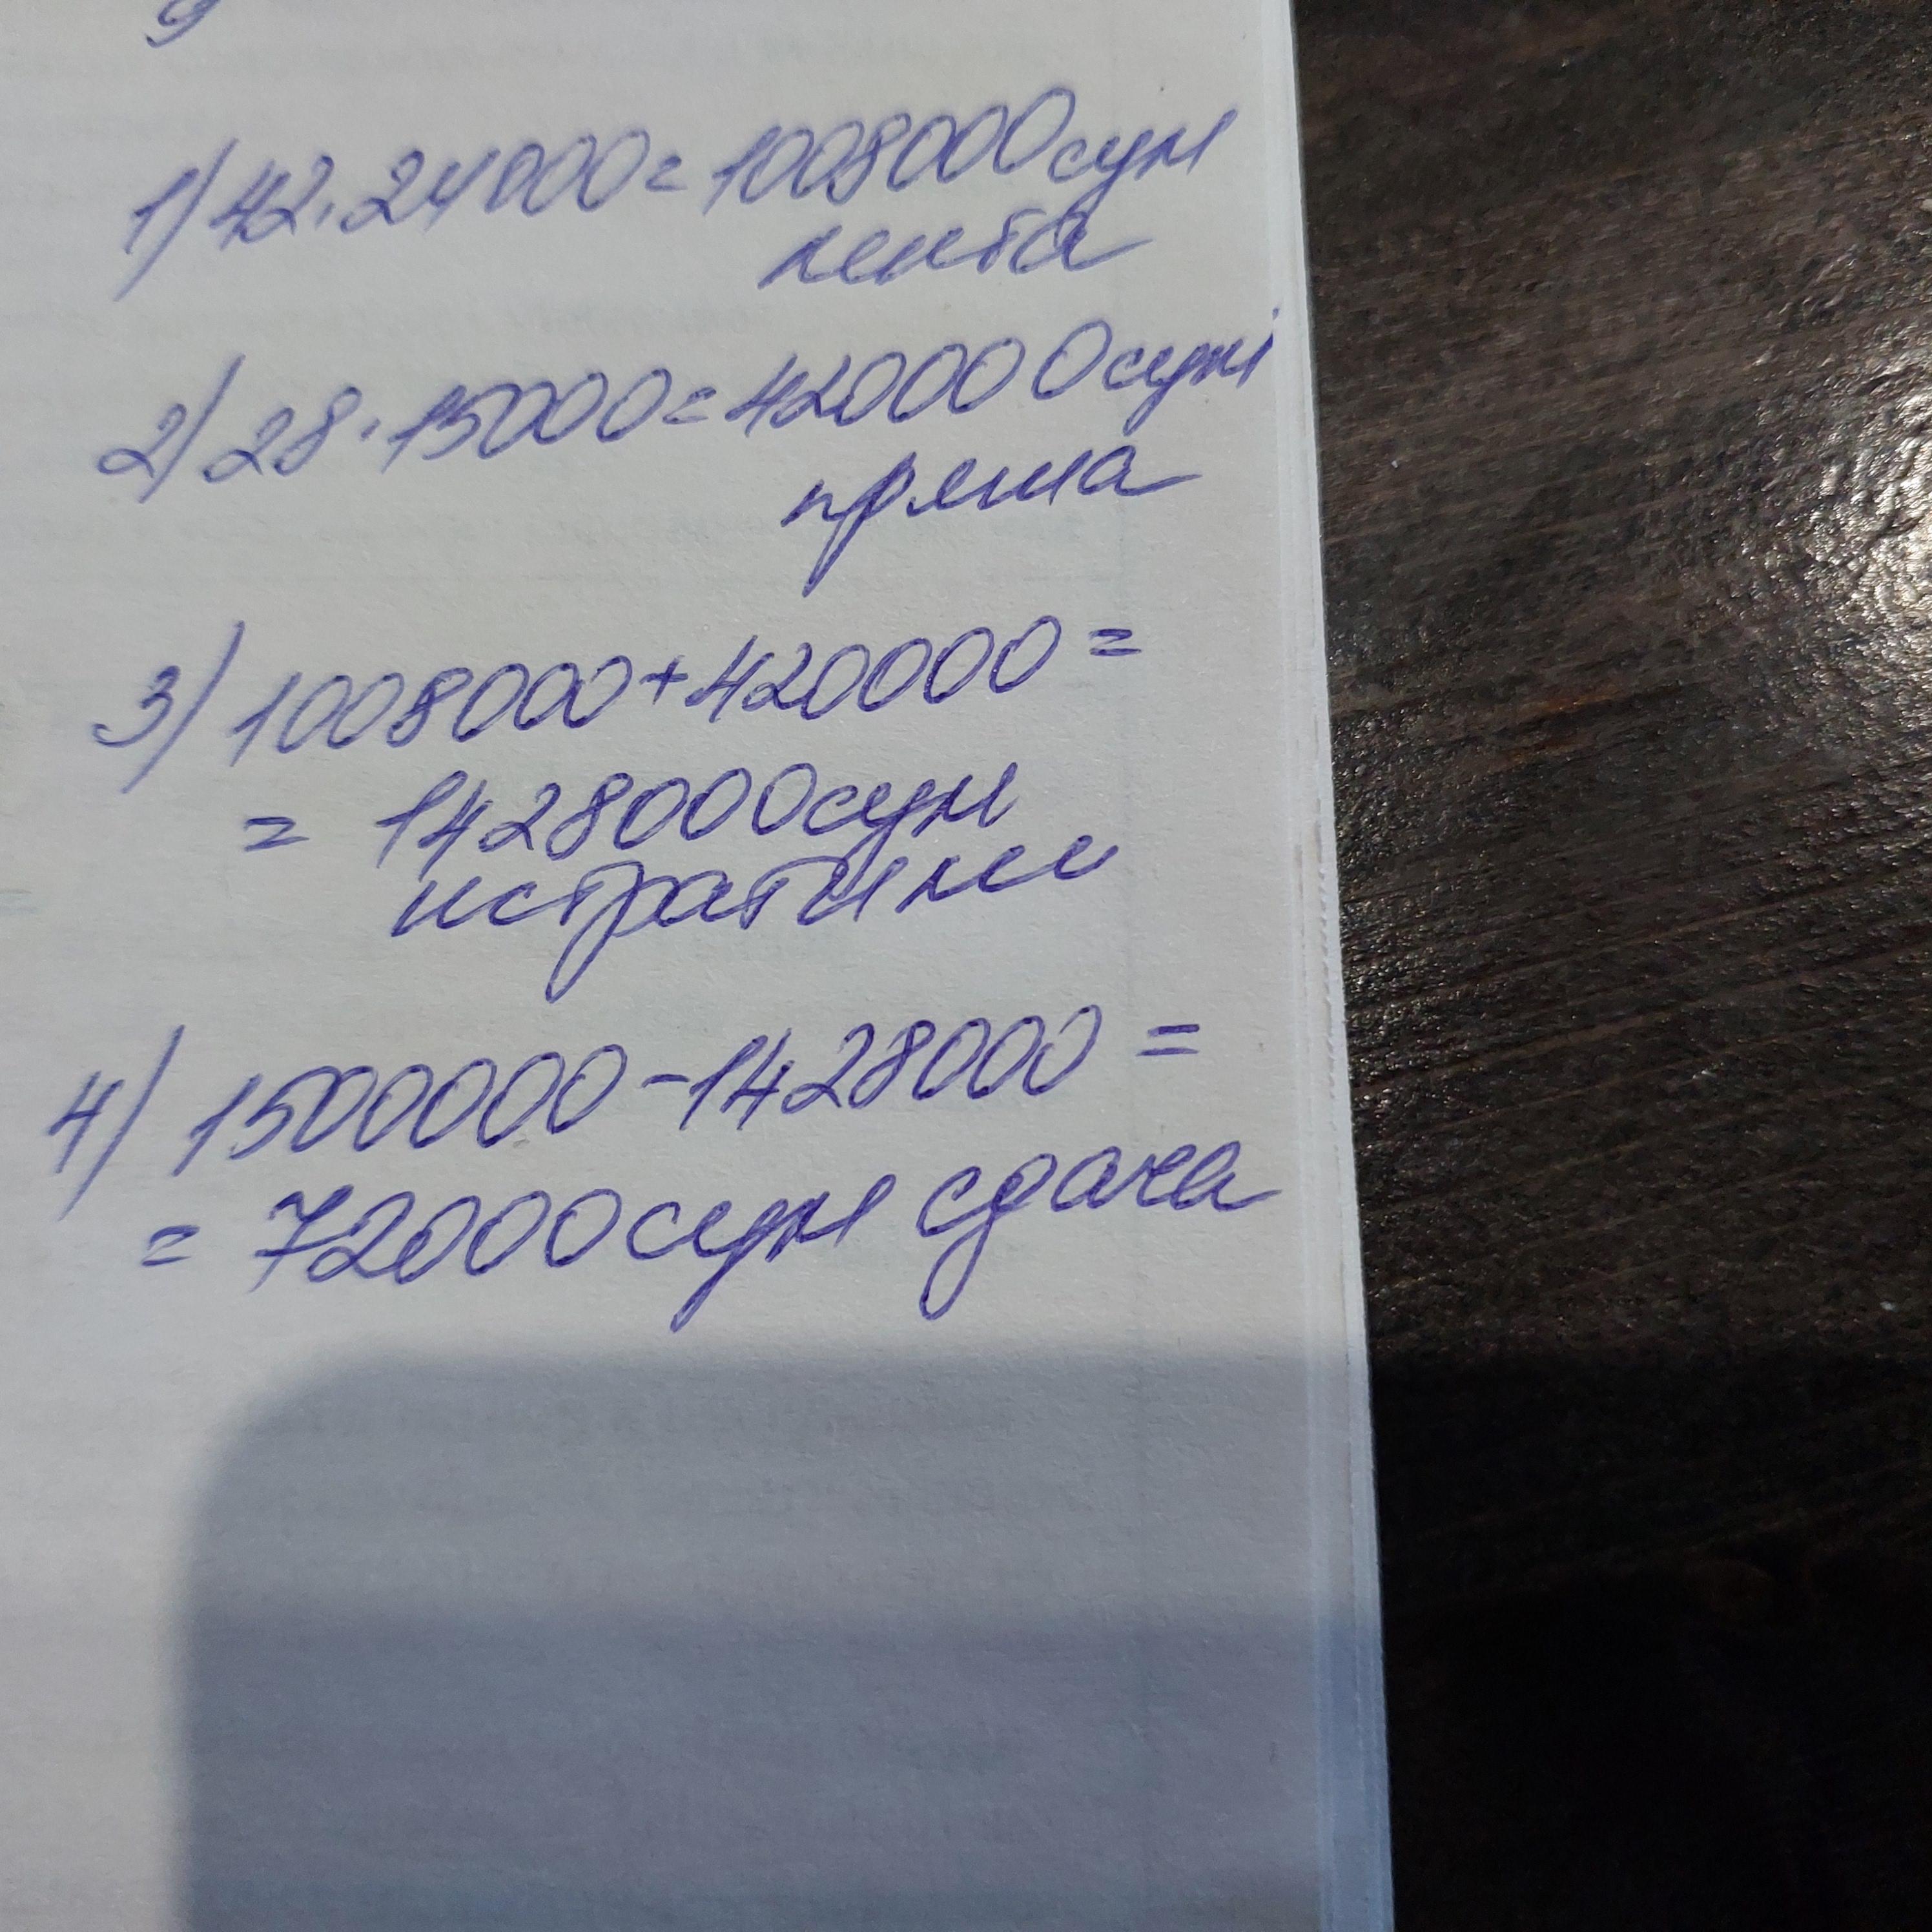 1) 42.24000=1008000сум
лента
2) 28.15000=420000сум
пряжа
3) 1008000+420000=
= 1428000сум
истратили
4) 1500000-1428000=
= 72000сум сдача